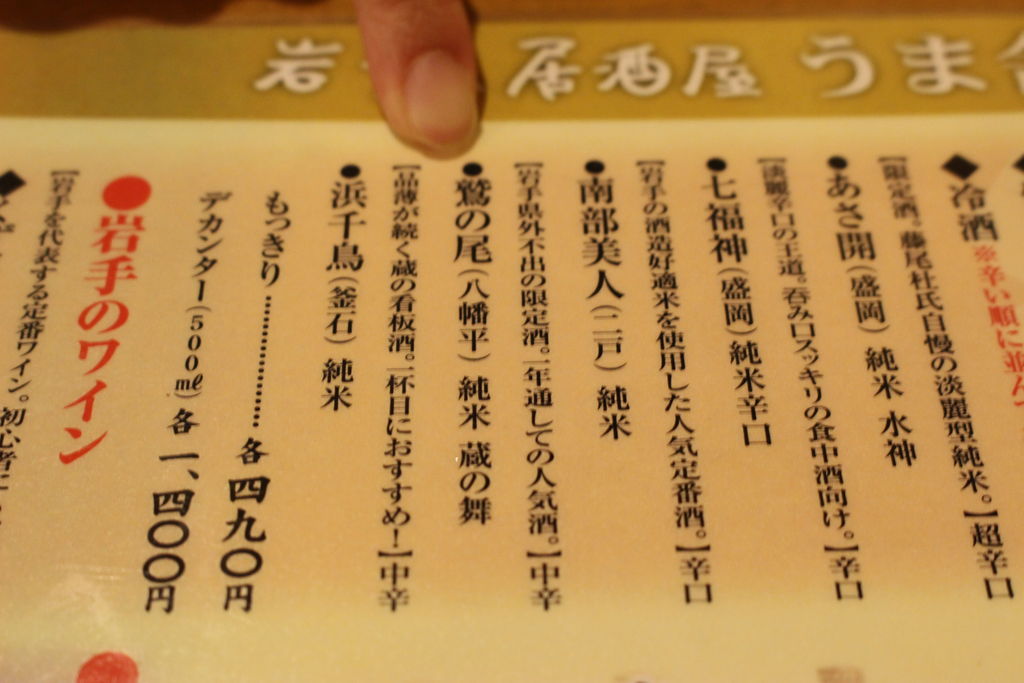 岩 居酒屋 うま
◆冷酒 ※辛い順に並ん
【限定酒。藤尾杜氏自慢の淡麗型純米。】超辛口
●あさ開(盛岡) 純米 水神
【淡麗辛口の王道。呑み口スッキリの食中酒向け。】辛口
●七福神(盛岡)純米辛口
【岩手の酒造好適米を使用した人気定番酒。】辛口
●南部美人(二戸) 純米
【岩手県外不出の限定酒。一年通しての人気酒。】中辛
●鷲の尾(八幡平) 純米 蔵の舞
【品薄が続く蔵の看板酒。一杯目におすすめ!】中辛
●浜千鳥(釜石) 純米
もっきり……………… 各 四九〇円
デカンター(500㎖) 各 一、四〇〇円
●岩手のワイン
【岩手を代表する定番ワイン。初心者に